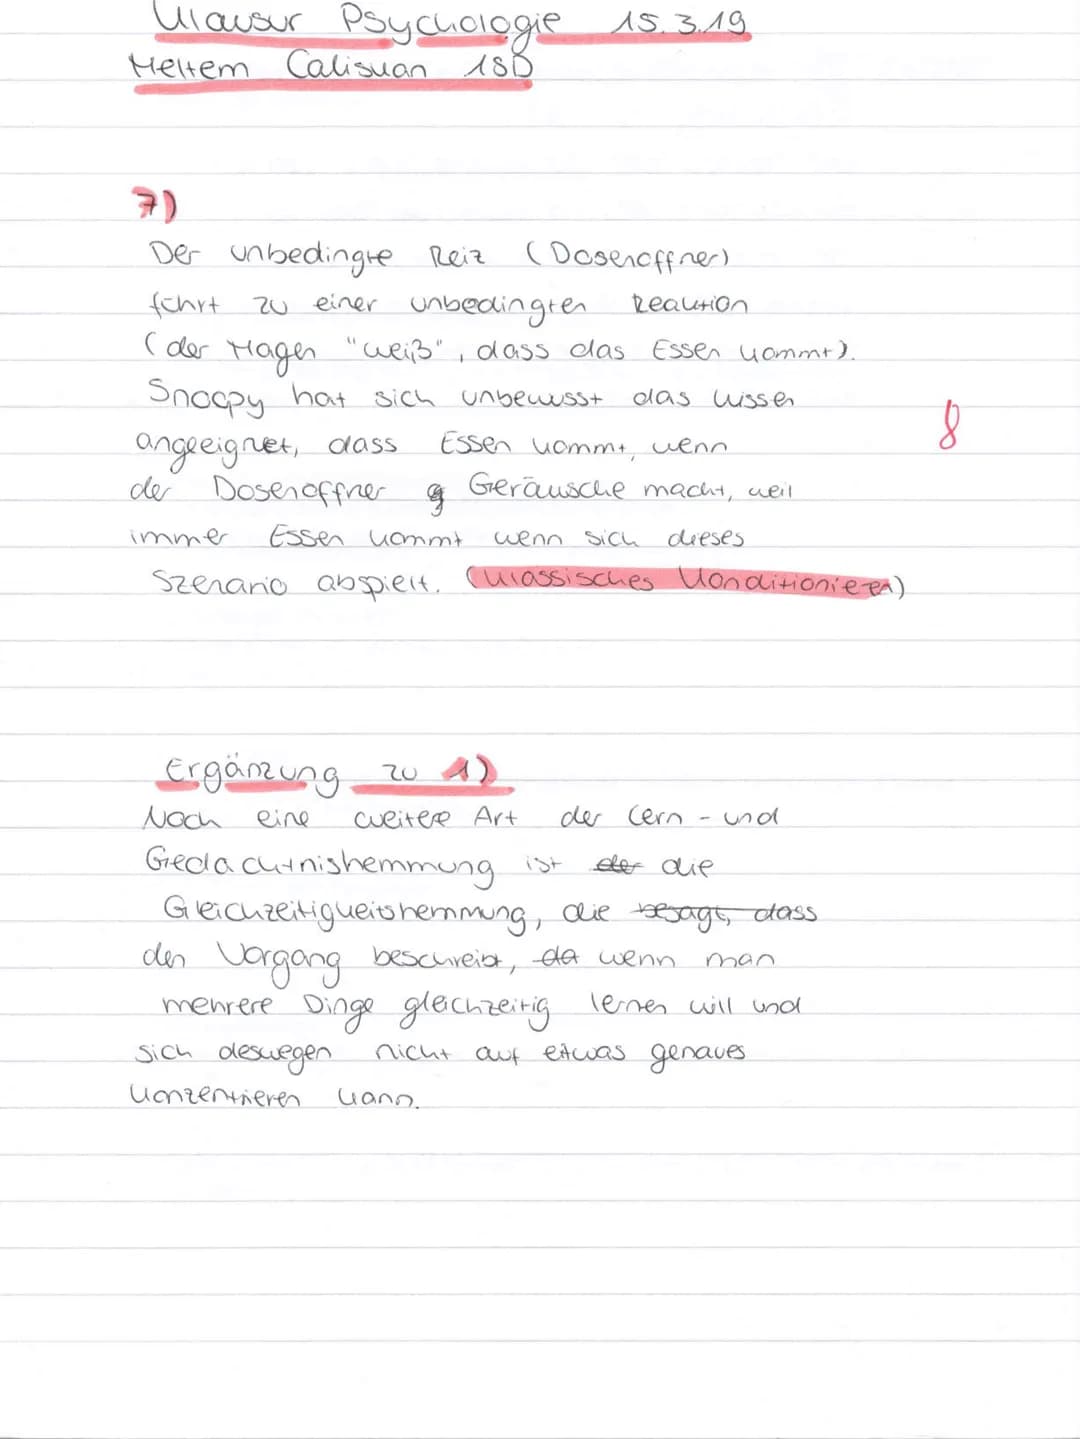 Klausur Psychologie 15.3.19
Meltem Caliskan 18D
7)
Der unbedingte Reiz (Dosenöffner)
führt zu einer unbedingten Reaktion
(der Magen "weiß", dass das Essen kommt).
Snoopy hat sich unbewusst das Wissen
angeeignet, dass Essen kommt, wenn
der Dosenöffner g Geräusche macht, weil
8
immer Essen kommt wenn sich dieses
Szenario abspielt. (Klassisches Konditionieren)
Ergänzung zu 1)
Noch eine weitere Art der Lern- und
Gedächtnishemmung ist der die
Gleichzeitigkeitshemmung, die besagt, dass
den Vorgang beschreibt, da wenn man
mehrere Dinge gleichzeitig lernen will und
sich deswegen nicht auf etwas genaues
konzentrieren kann.